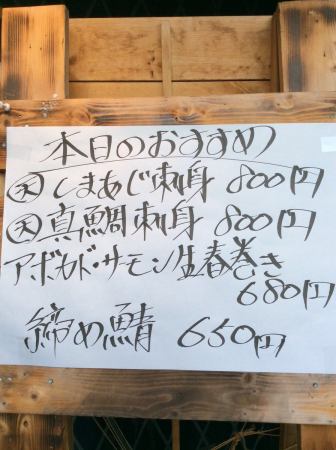 本日のおすすめ
天 しまあじ刺身 800円
天 真鯛刺身 800円
アボカド・サーモン生春巻き
680円
締め鯖 650円